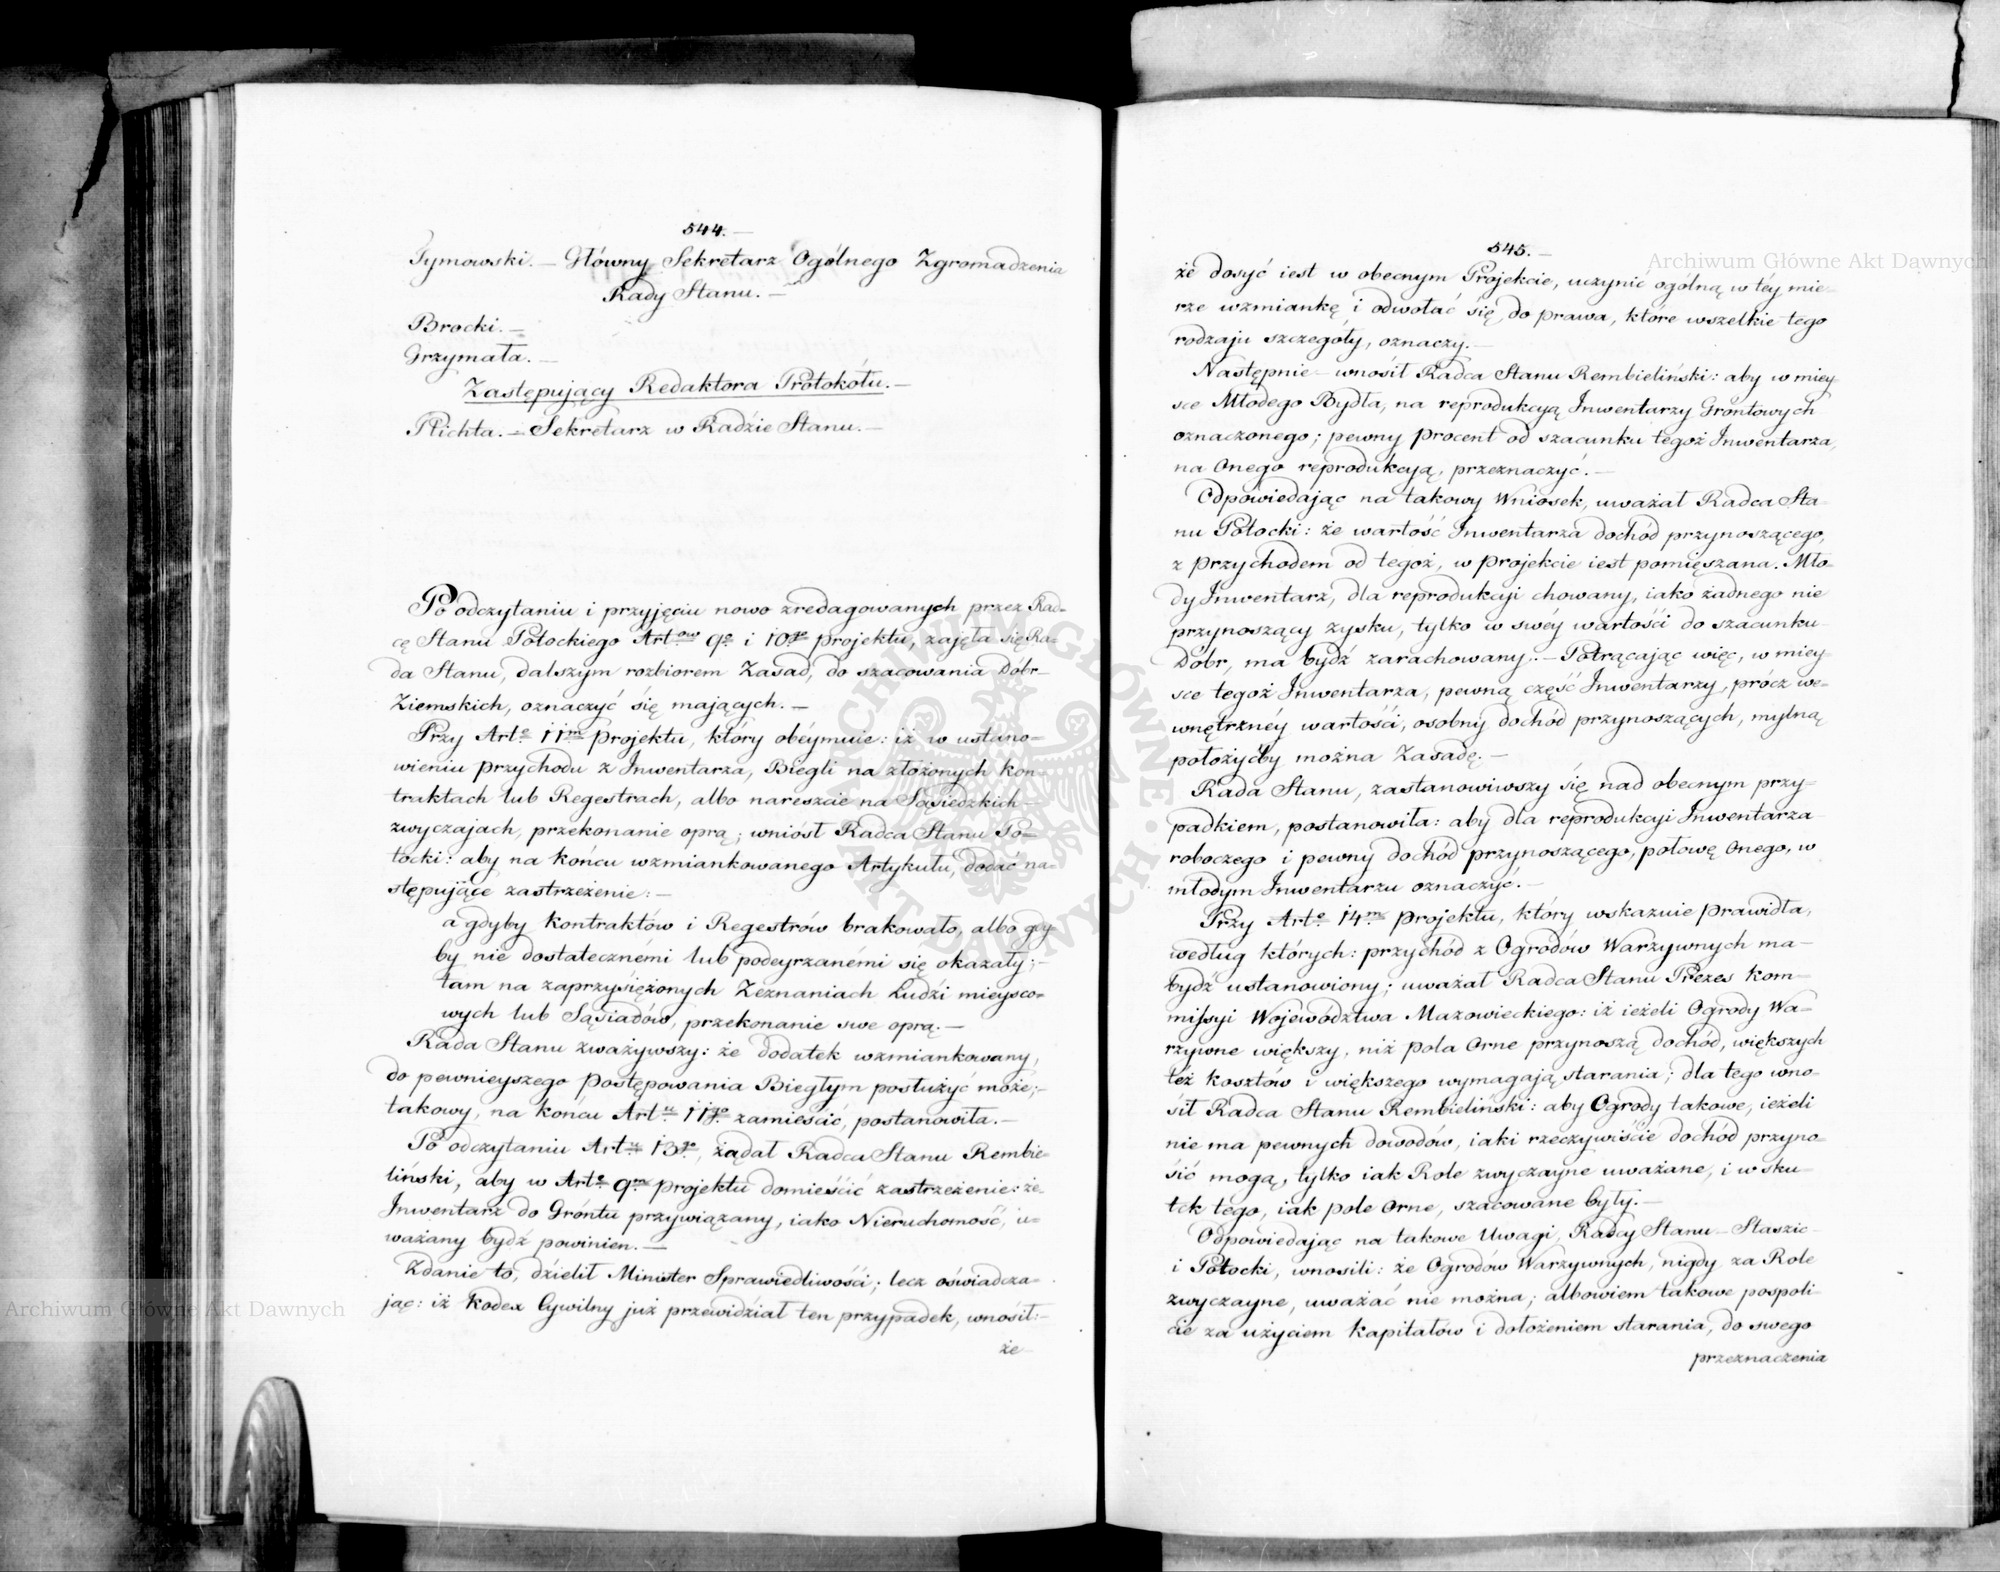 544.
Tymowski. — Główny Sekretarz Ogólnego Zgromadzenia
Rady Stanu. —
Brocki. —
Grzymała. —
Zastępujący Redaktora Protokółu. —
Plichta. — Sekretarz w Radzie Stanu. —
Po odczytaniu i przyjęciu nowo zredagowanych przez Rad-
cę Stanu Potockiego Art.ów 9º i 10go projektu, zajęła się Ra-
da Stanu, dalszym rozbiorem Zasad, do szacowania Dóbr
Ziemskich, oznaczyć się mających. —
Przy Art.e 11m projektu, który obeymuie: iż w ustano-
wieniu przychodu z Inwentarza, Biegli na złożonych kon-
traktach lub Regestrach, albo nareszcie na Sąsiedzkich
zwyczajach, przekonanie oprą; wniósł Radca Stanu Po-
tocki: aby na końcu wzmiankowanego Artykułu, dodać na-
stępujące zastrzeżenie: —
a gdyby kontraktów i Regestrów brakowało, albo gdy-
by nie dostatecznémi lub podeyrzanémi się okazały; —
tam na zaprzysiężonych Zeznaniach Ludzi mieysco-
wych lub Sąsiadów, przekonanie swe oprą. —
Rada Stanu zważywszy: że dodatek wzmiankowany,
do pewnieyszego Postępowania Biegłym posłużyć może; —
takowy, na końcu Art.u 11go zamieścić, postanowiła. —
Po odczytaniu Art.u 13go, żądał Radca Stanu Rembie-
liński, aby w Art.e 9m projektu domieścić zastrzeżenie: że
Inwentarz do Gróntu przywiązany, iako Nieruchomość, u-
ważany bydź powinien. —
Zdanie to, dzielił Minister Sprawiedliwości; lecz oświadcza-
jąc: iż Kodex Cywilny już przewidział ten przypadek, wnosił: —
że
545. —
że dosyć iest w obecnym Projekcie, uczynić ogólną w téy mie-
rze wzmiankę i odwołać się do prawa, które wszelkie tego
rodzaju szczegoły, oznaczy. —
Następnie wnósił Radca Stanu Rembieliński: aby w miey-
sce Młodego Bydła, na reprodukcyą Inwentarzy Gróntowych
oznaczonego; pewny procent od szacunku tegoż Inwentarza,
na Onego reprodukcyą, przeznaczyć. —
Odpowiedając na takowy Wniosek, uważał Radca Sta-
nu Potocki: że wartość Inwentarza dochód przynoszącego,
z przychodem od tegoż, w projekcie iest pomięszana. Mło-
dy Inwentarz, dla reprodukcji chowany, iako żadnego nie
przynoszący zysku, tylko w swéy wartości do szacunku
Dóbr, ma bydź zarachowany. — Potrącając więc, w miey-
sce tegoż Inwentarza, pewną część Inwentarzy, prócz we-
wnętrznéy wartośći, osobny dochód przynoszących, mylną
położyćby można Zasadę. —
Rada Stanu, zastanowiwszy się nad obecnym przy-
padkiem, postanowiła: aby dla reprodukcji Inwentarza
roboczego i pewny dochód przynoszącego, połowę Onego, w
młodym Inwentarzu oznaczyć. —
Przy Art.e 14m projektu, który wskazuie prawidła,
według których: przychód z Ogrodów Warzywnych ma
bydź ustanowiony; uważał Radca Stanu Prezes Kom-
missyi Województwa Mazowieckiego: iż ieżeli Ogrody Wa-
rzywne większy, niż pola Orne przynoszą dochód, większych
téż kosztów i większego wymagają starania; dla tego wno-
sił Radca Stanu Rembieliński: aby Ogrody takowe, ieżeli
nie ma pewnych dowodów, iaki rzeczywiście dochód przyno-
sić mogą, tylko iak Role zwyczayne uważane, i w sku-
tek tego, iak pole Orne, szacowane były. —
Odpowiedając na takowe Uwagi, Radcy Stanu Staszic
i Potocki, wnosili: że Ogrodów Warzywnych, nigdy za Role
zwyczayne, uważać nie można; albowiem takowe pospoli-
cie za użyciem Kapitałów i dołożeniem starania, do swego
przeznaczenia
Archiwum Główne Akt Dawnych
Archiwum Główne Akt Dawnych
ARCHIWUM GŁÓWNE AKT DAWNYCH